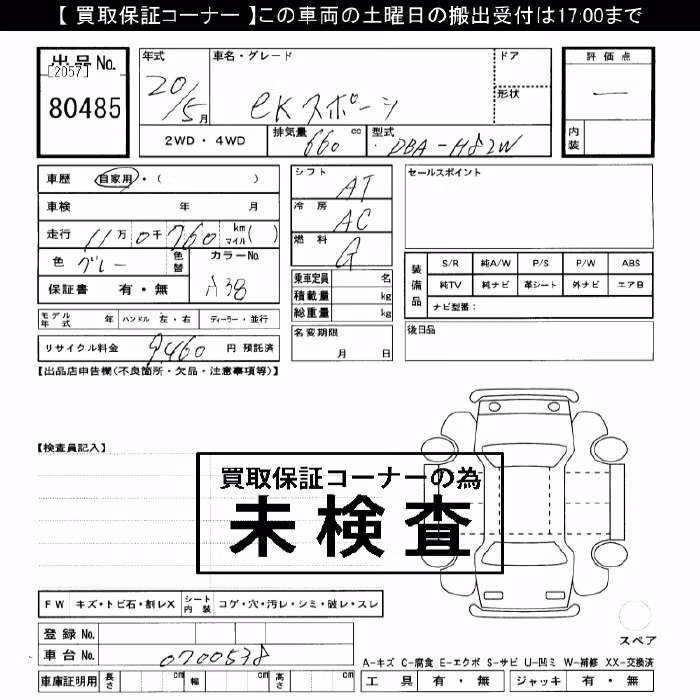 【 買取保証コーナー 】この車両の土曜日の搬出受付は17:00まで
出品No.
[2057]
80485
年式 20/5月
車名・グレード eKスポーツ
ドア
形状
評価点 —
内装
2WD・4WD
排気量 660 cc
型式 DBA-H82W
車歴 自家用・( )
車検 年 月
走行 11万0千760 km マイル( )
色 グレー 色替 カラーNo. A38
保証書 有・無
モデル年式 年 ハンドル 左・右 ディーラー・並行
リサイクル料金 9,460 円 預託済
シフト AT
冷房 AC
燃料 G
乗車定員 名
積載量 kg
総重量 kg
名変期限 月 日
セールスポイント
装備品 S/R 純A/W P/S P/W ABS
純TV 純ナビ 革シート 外ナビ エアB
ナビ型番:
後日品
【出品店申告欄(不良箇所・欠品・注意事項等)】
【検査員記入】
買取保証コーナーの為
未検査
FW キズ・トビ石・割レX シート内装 コゲ・穴・汚レ・シミ・破レ・スレ
登録No.
車台No. 0700538
車庫証明用 長さ cm 幅 cm 高さ cm
スペア
A-キズ C-腐食 E-エクボ S-サビ U-凹ミ W-補修 XX-交換済
工具 有・無 ジャッキ 有・無